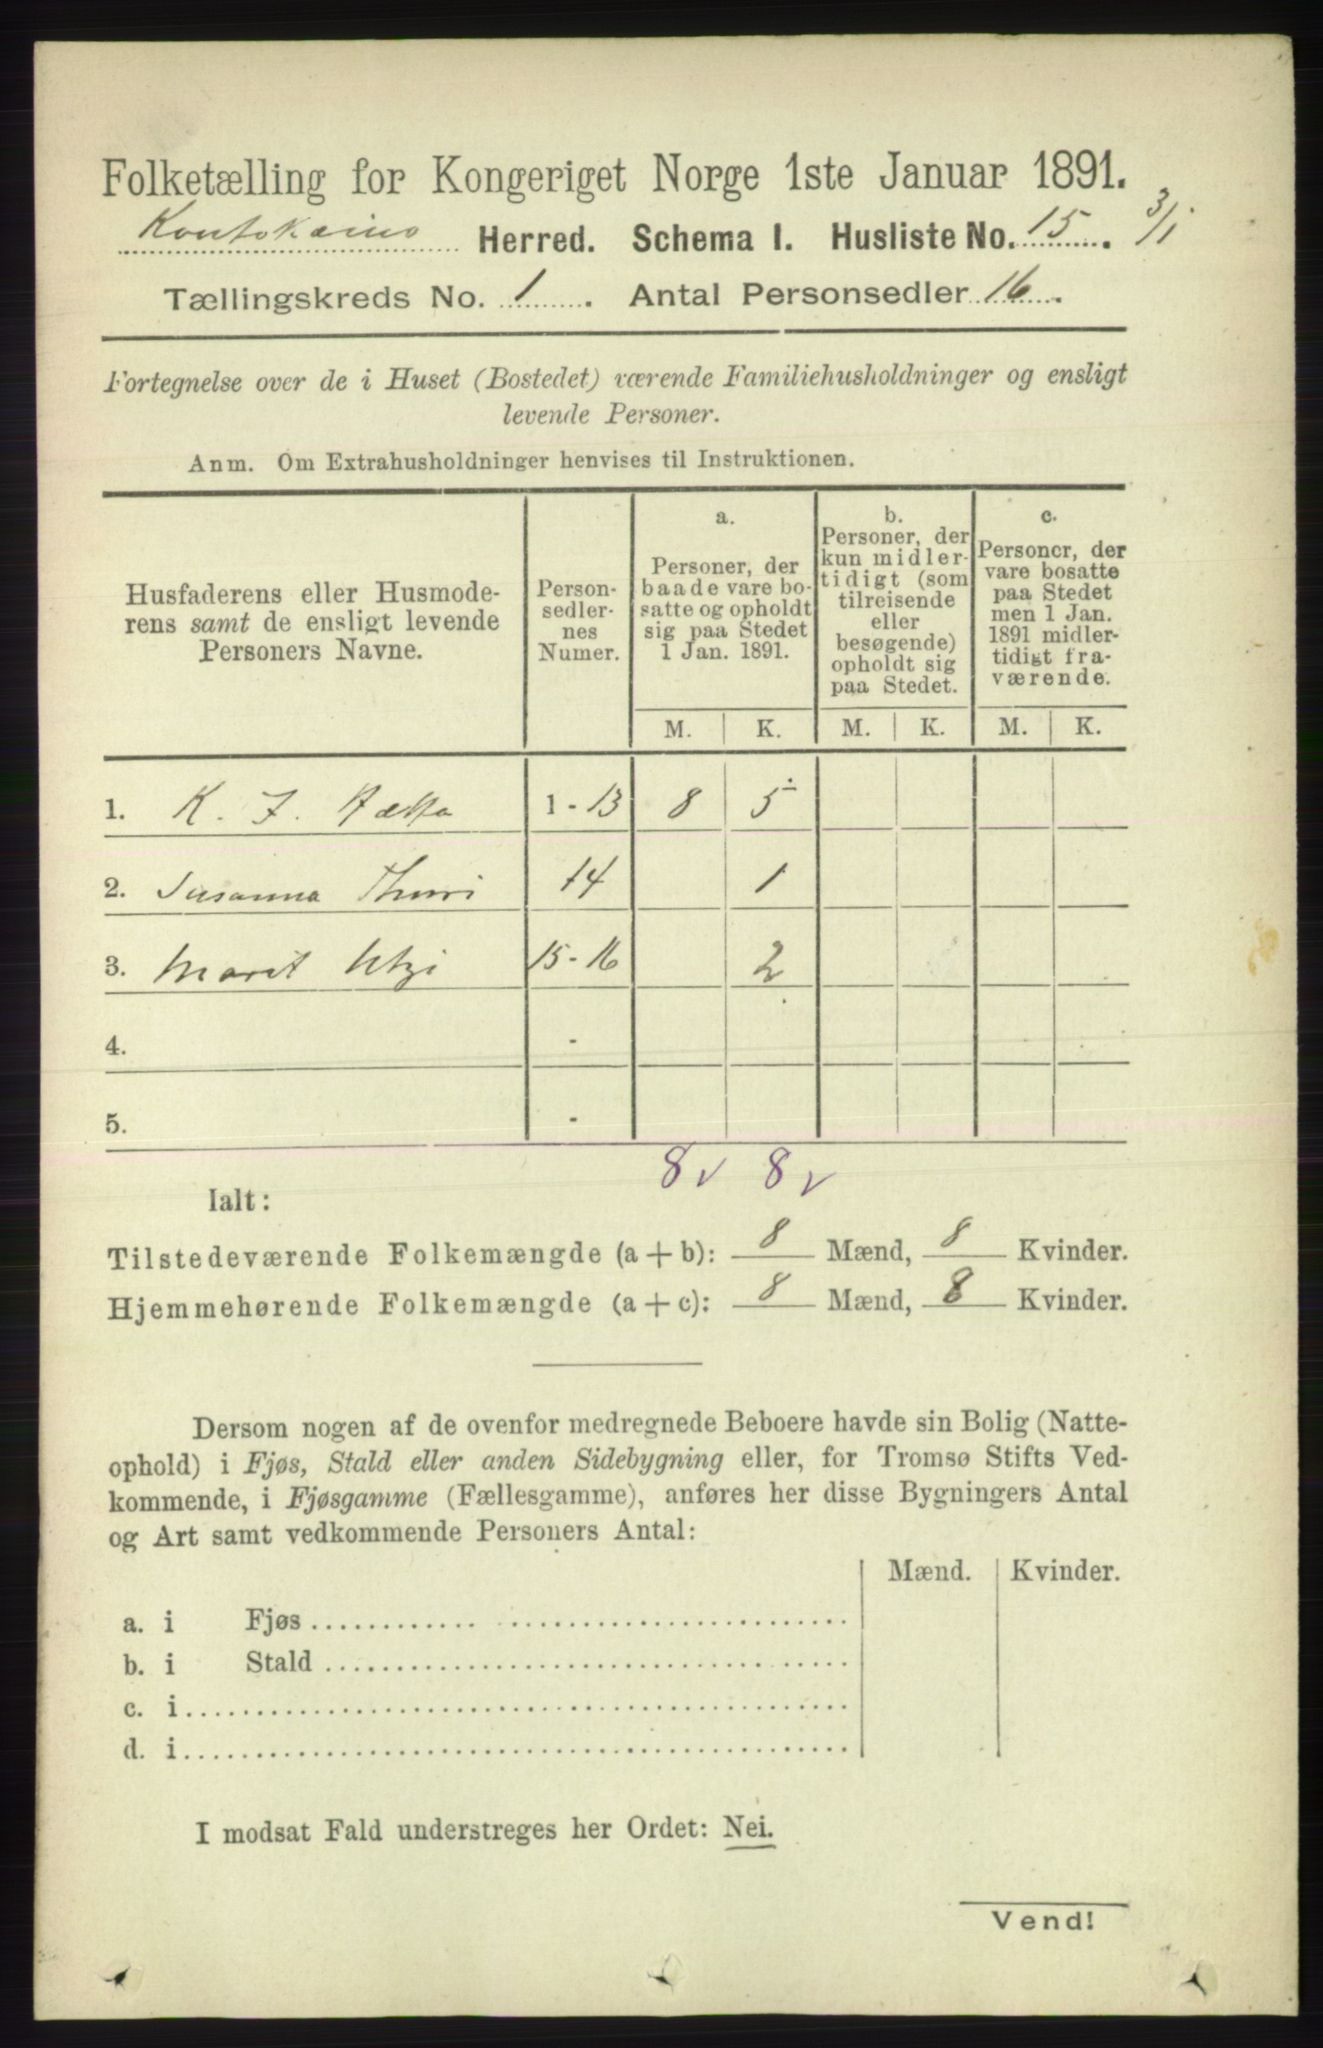 Folketælling for Kongeriget Norge 1ste Januar 1891.
Koutokæino Herred. Schema I. Husliste No. 15. 3/1
Tællingskreds No. 1. Antal Personsedler 16.
Fortegnelse over de i Huset (Bostedet) værende Familiehusholdninger og ensligt
levende Personer.
Anm. Om Extrahusholdninger henvises til Instruktionen.
Husfaderens eller Husmode-
rens samt de ensligt levende
Personers Navne.
Person-
sedler-
nes
Numer.
a.
Personer, der
baade vare bo-
satte og opholdt
sig paa Stedet
1 Jan. 1891.
b.
Personer, der
kun midler-
tidigt (som
tilreisende
eller
besøgende)
opholdt sig
paa Stedet.
c.
Personer, der
vare bosatte
paa Stedet
men 1 Jan.
1891 midler-
tidigt fra-
værende.
M. K. M. K. M. K.
1. K. J. Hætta 1 - 13 8 5
2. Susanna Thuri 14 1
3. Marit Utzi 15 - 16 2
4. -
5. -
8 v 8 v
Ialt:
Tilstedeværende Folkemængde (a + b): 8 Mænd, 8 Kvinder.
Hjemmehørende Folkemængde (a + c): 8 Mænd, 8 Kvinder.
Dersom nogen af de ovenfor medregnede Beboere havde sin Bolig (Natte-
ophold) i Fjøs, Stald eller anden Sidebygning eller, for Tromsø Stifts Ved-
kommende, i Fjøsgamme (Fællesgamme), anføres her disse Bygningers Antal
og Art samt vedkommende Personers Antal:
Mænd. Kvinder.
a. i Fjøs
b. i Stald
c. i
d. i
I modsat Fald understreges her Ordet: Nei.
Vend!